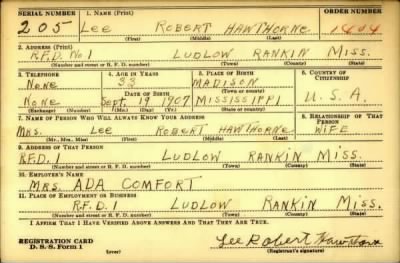 SERIAL NUMBER 1. NAME (Print) ORDER NUMBER
205 LEE ROBERT HAWTHORNE 1404
(First) (Middle) (Last)
2. ADDRESS (Print)
R.F.D. No 1 LUDLOW RANKIN MISS.
(Number and street or R. F. D. number) (Town) (County) (State)
3. TELEPHONE 4. AGE IN YEARS 5. PLACE OF BIRTH 6. COUNTRY OF CITIZENSHIP
NONE 33 MADISON
DATE OF BIRTH (Town or county)
NONE Sept. 19 1907 MISSISSIPPI U.S.A.
(Exchange) (Number) (Mo.) (Day) (Yr.) (State or country)
7. NAME OF PERSON WHO WILL ALWAYS KNOW YOUR ADDRESS 8. RELATIONSHIP OF THAT PERSON
MRS. LEE ROBERT HAWTHORNE WIFE
(Mr., Mrs., Miss) (First) (Middle) (Last)
9. ADDRESS OF THAT PERSON
R.F.D. 1 LUDLOW RANKIN MISS.
(Number and street or R. F. D. number) (Town) (County) (State)
10. EMPLOYER'S NAME
MRS. ADA COMFORT
11. PLACE OF EMPLOYMENT OR BUSINESS
R.F.D. 1 LUDLOW RANKIN MISS.
(Number and street or R. F. D. number) (Town) (County) (State)
I AFFIRM THAT I HAVE VERIFIED ABOVE ANSWERS AND THAT THEY ARE TRUE.
REGISTRATION CARD
D. S. S. Form 1 (over) Lee Robert Hawthorne
(Registrant's signature)